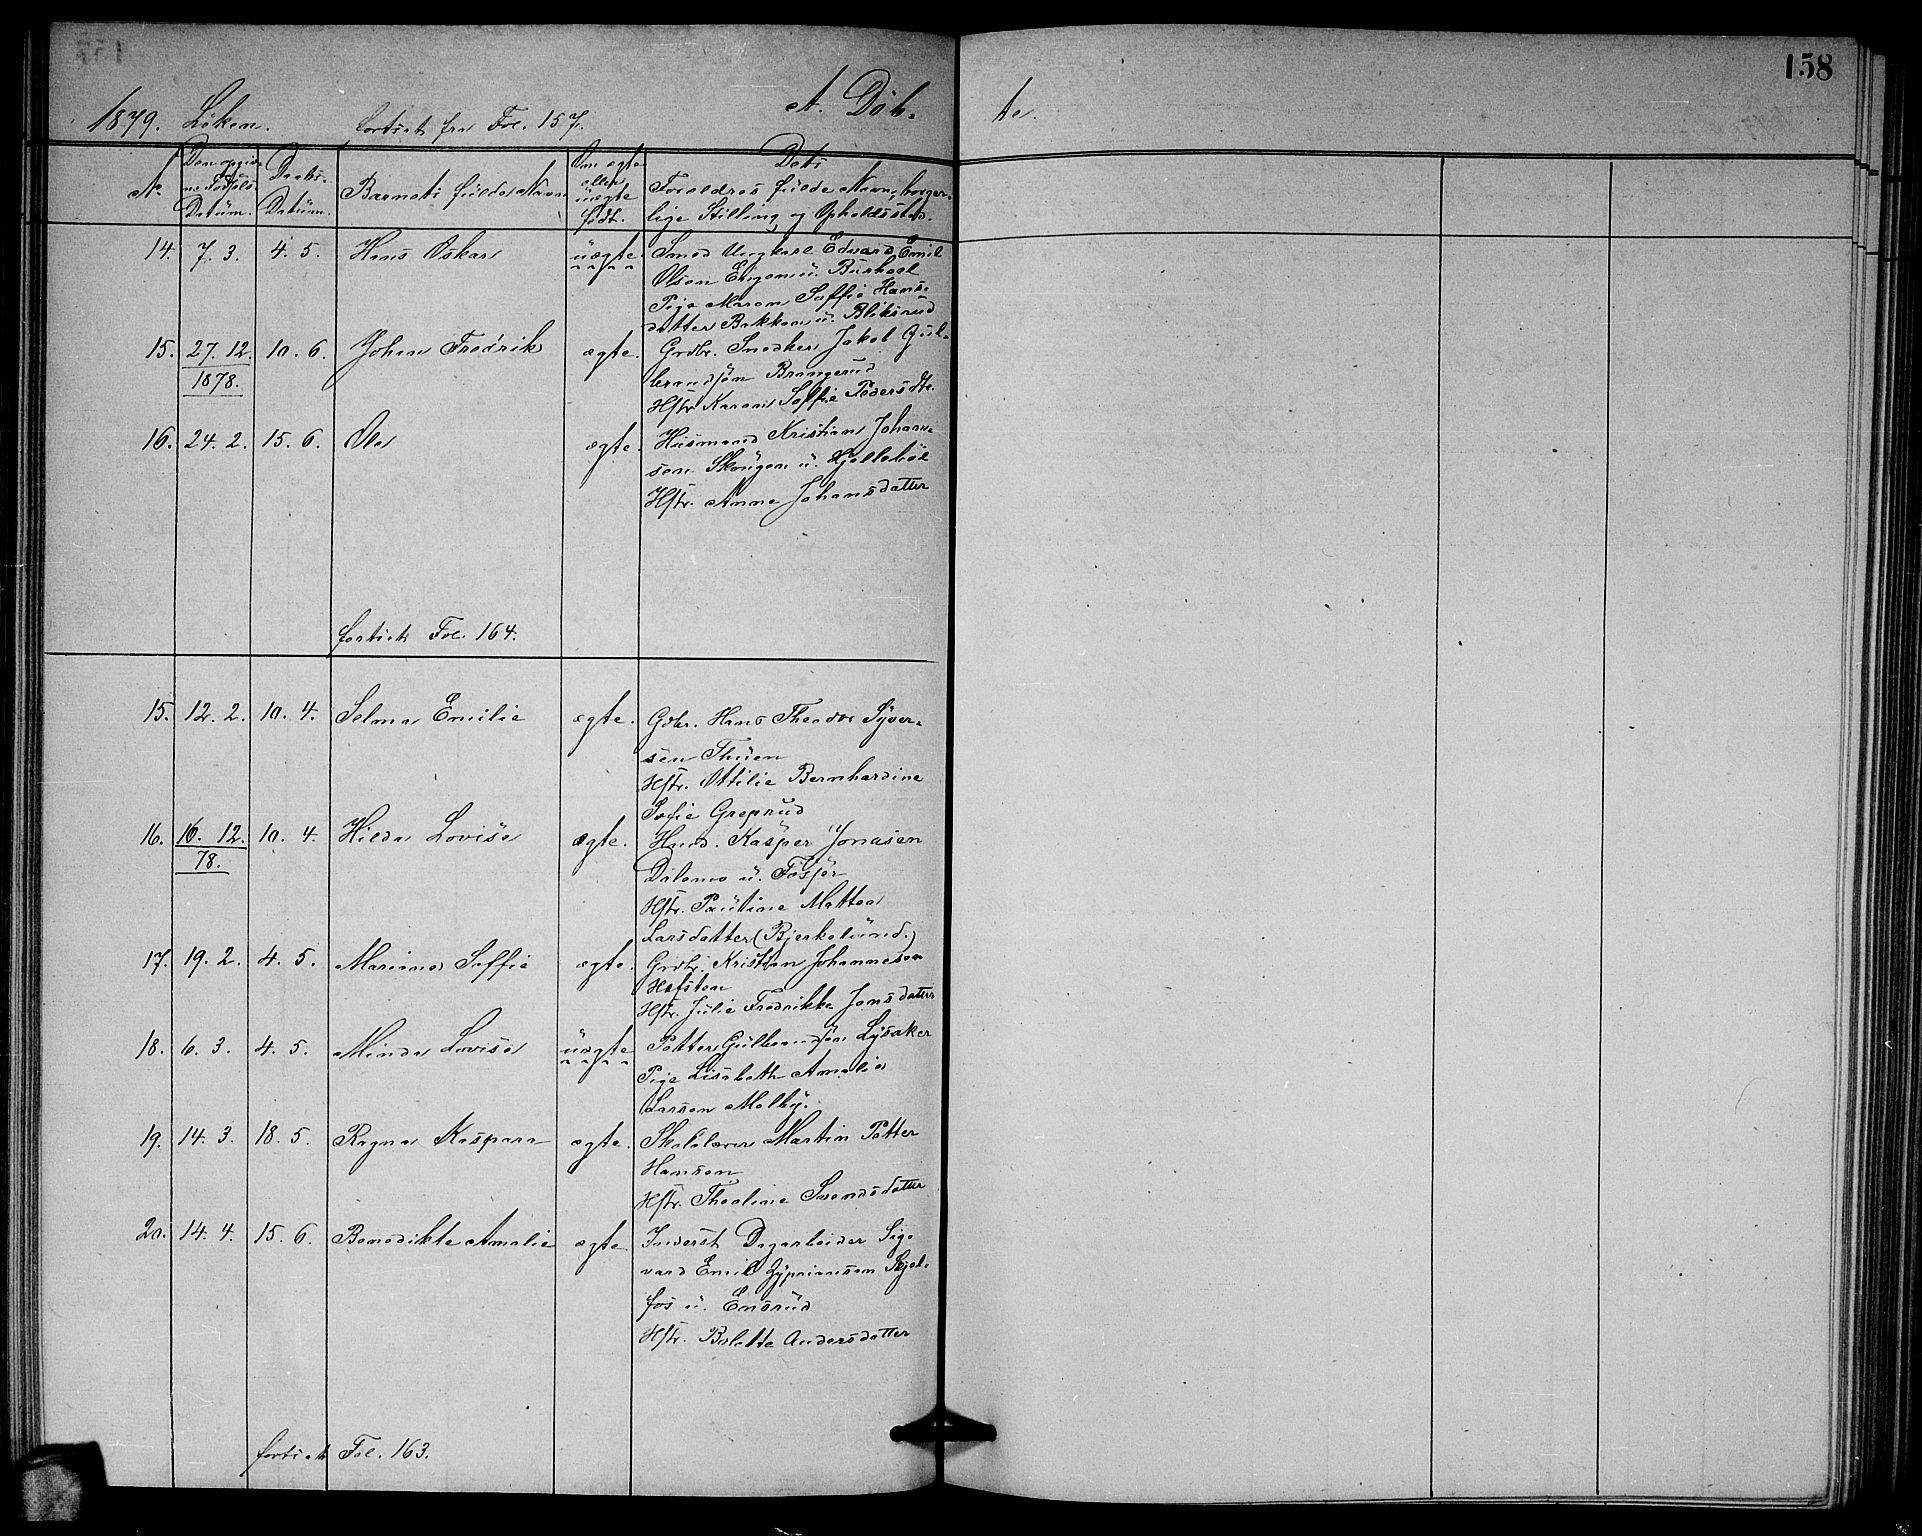 158
1879. Löken. fortsat fra Fol. 157. A. Döb- te.
No. Den opgiv- ne Födsels- Datum. Daabs- Datum. Barnets fulde Navn Om ægte eller uægte födt. Dets Forældres fulde Navn, borger- lige Stilling og Opholdssted.
14. 7. 3. 4. 5. Hans Oskar uægte Smed Ungkarl Edvard Emil
Olsen Engen u.
Pige Maren Soffie Hans-
datter Bakken u. Bliksrud
15. 27. 12. 10. 6. Johan Fredrik ægte. Grdbr. Snedker Jakob Gul-
1878. brandsön Brangerud
Hstr. Karen Soffie Pedersdtr.
16. 24. 2. 15. 6. Ole ægte. Husmand Kristian Johan-
sen Skougen u. Hjelleböl
Hstr. Anne Johansdatter
fortsat Fol. 164.
15. 12. 2. 10. 4. Selma Emilie ægte. Gdbr. Hans Theodor Syver-
sen Thuen
Hstr. Ottilie Bernhardine
Sofie Greprud
16. 16. 12. 10. 4. Hilda Lovise ægte. Husmd. Kasper Jonasen
78. Dalemo u. Fosser
Hstr. Pauline Mathea
Larsdatter (Bjerkelund.)
17. 19. 2. 4. 5. Mariane Soffie ægte. Grdbr. Kristian Johannesen
Hofsten
Hstr. Julie Fredrikke Jensdatter
18. 6. 3. 4. 5. Minda Lovise uægte Petter Gulbrandsön Lysaker
Pige Lisabeth Amalie
Larsen Melby.
19. 14. 3. 18. 5. Ragna Kaspara ægte. Skolelærer Martin Petter
Hansen
Hstr. Thealine Svendsdatter
20. 14. 4. 15. 6. Benedikte Amalie ægte. Inderst Dagarbeider Sige
vard Emil Zyprianssen Skjel-
fos u. Ensrud
Hstr. Bolette Andersdatter
fortsat Fol. 163.